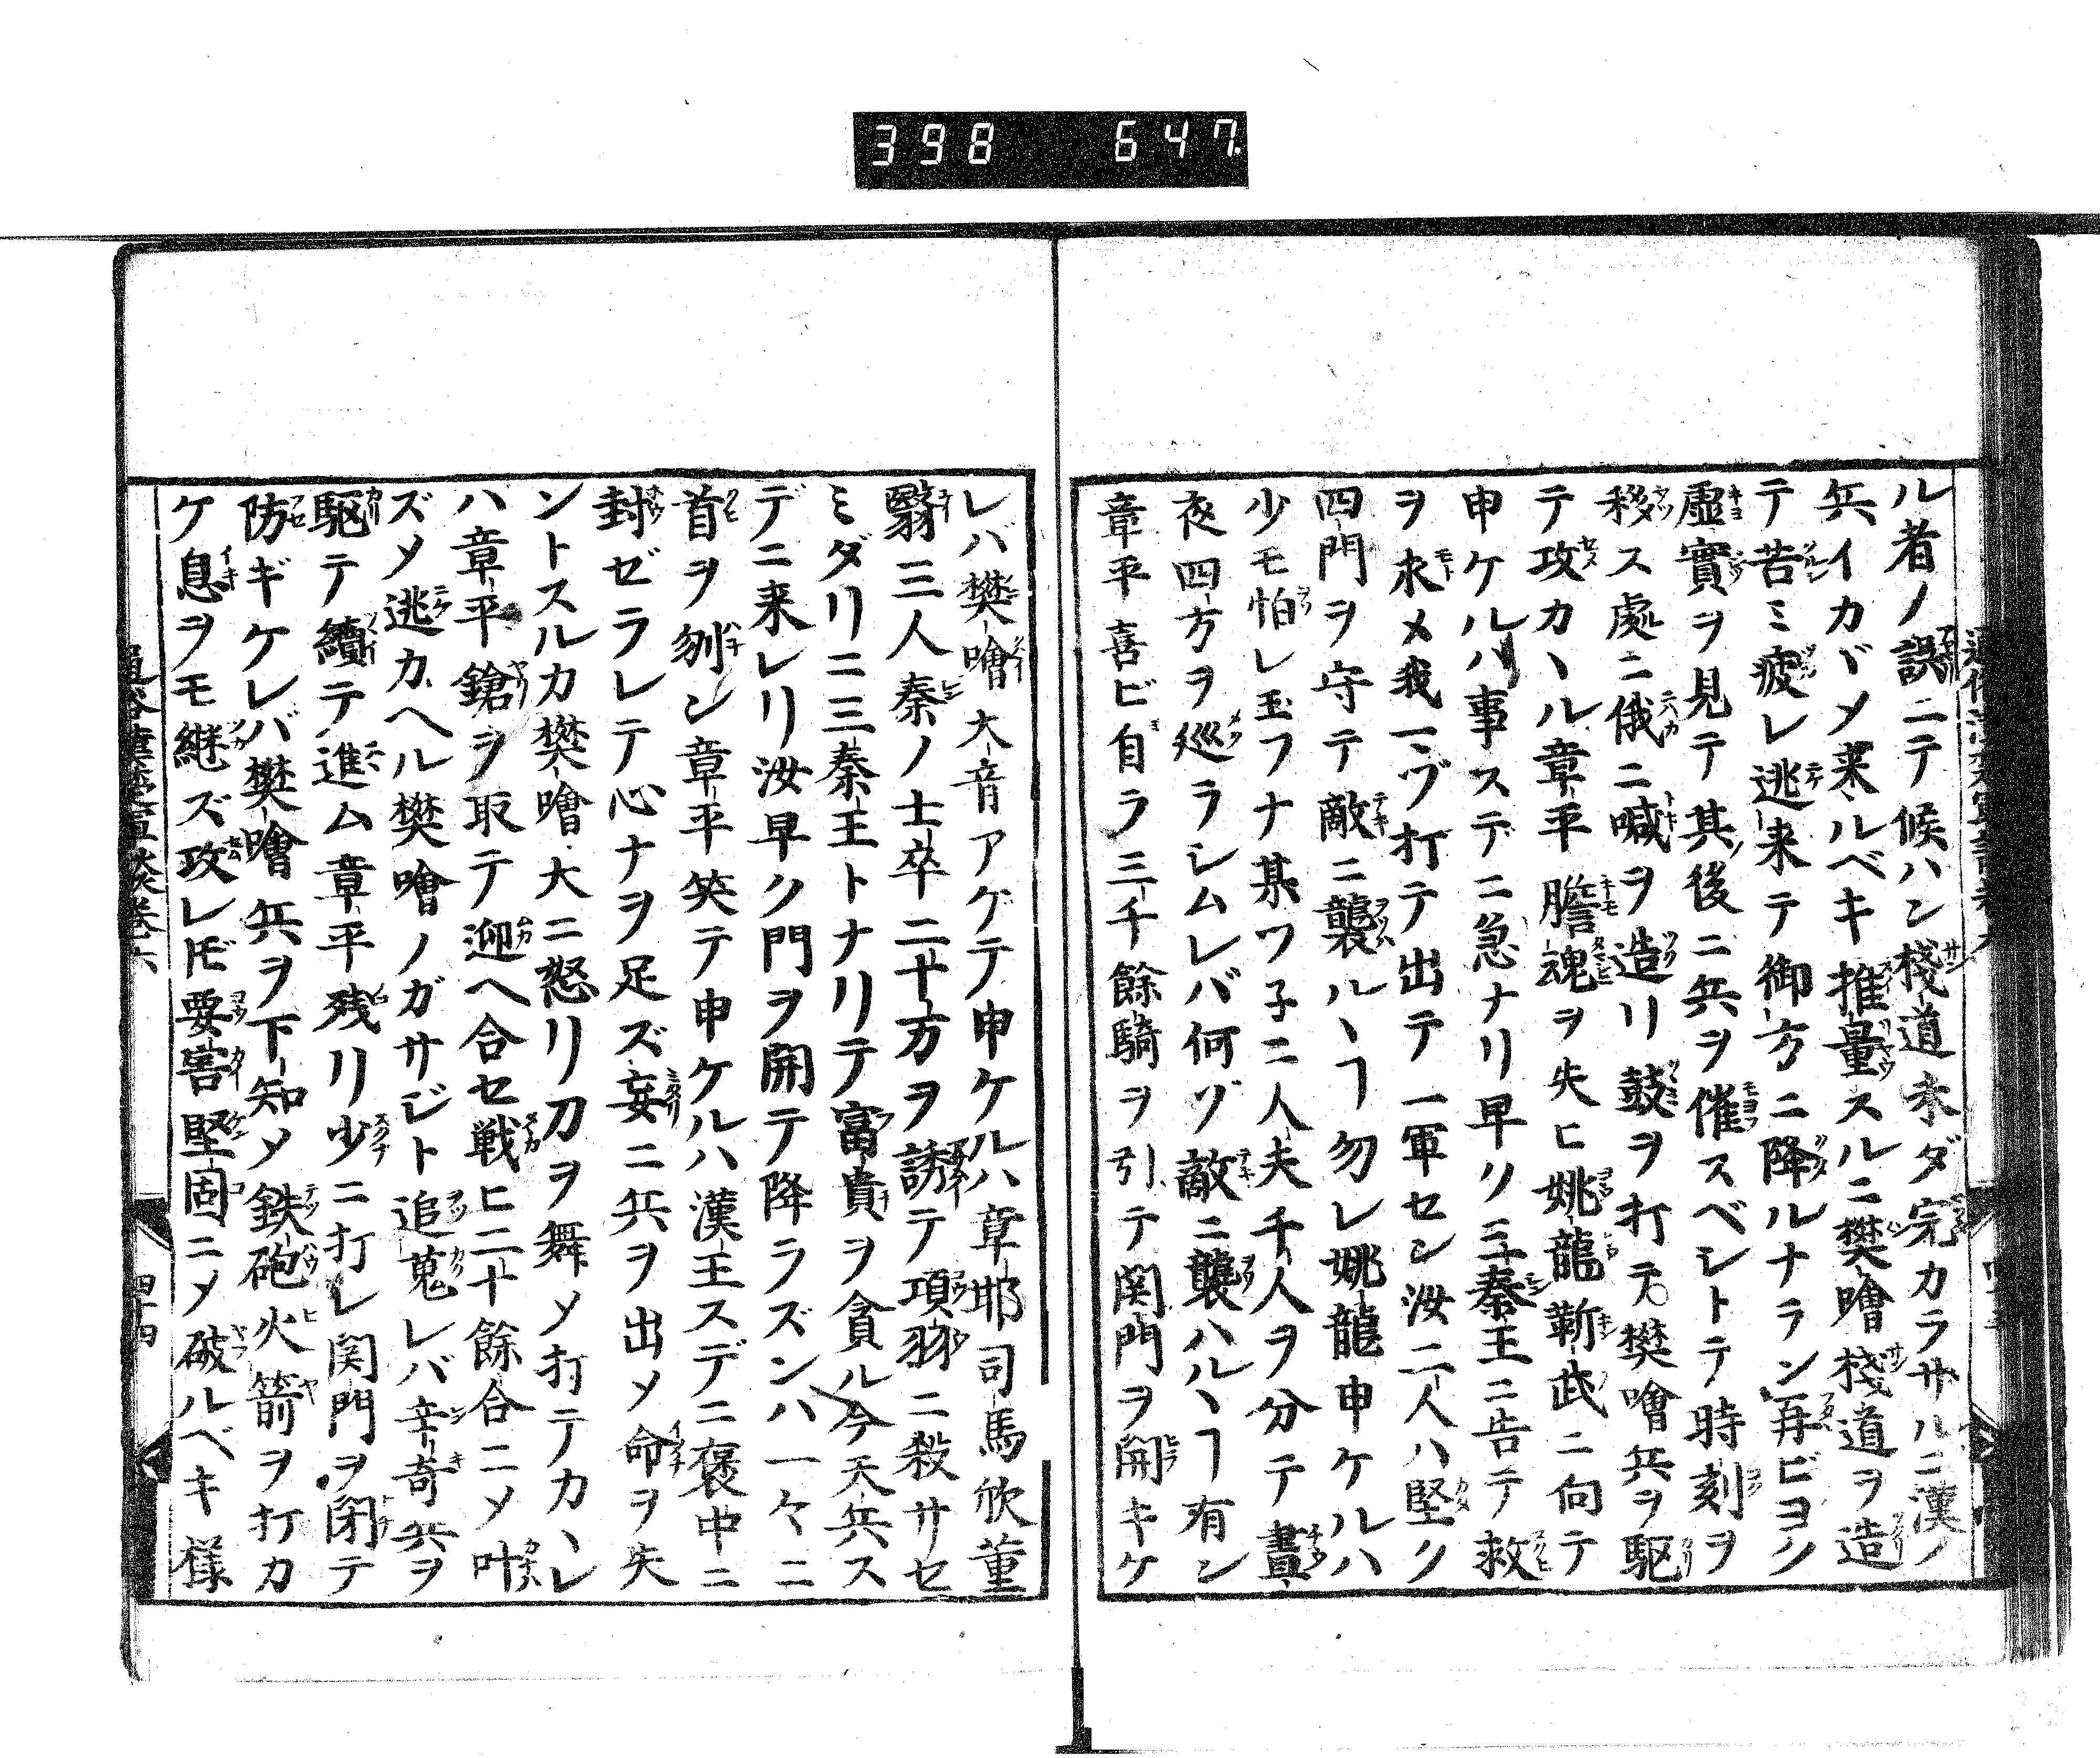 398 647
ル者ノ誤ニテ候ハン棧道未ダ完カラサルニ漢ノ
兵イカヾメ来ルベキ推量スルニ樊噲棧道ヲ造
テ苦ミ疲レ逃来テ御方ニ降ルナラン再ビヨク
虚實ヲ見テ其後ニ兵ヲ催スベシトテ時刻ヲ
移ス處ニ俄ニ喊ヲ造リ鼓ヲ打テ樊噲兵ヲ駆
テ攻カヽル章平膽魂ヲ失ヒ姚龍靳武ニ向テ
申ケルハ事ステニ急ナリ早ク三秦王ニ告テ救
ヲ求メ我一ヅ打テ出テ一軍セン汝二人ハ堅ク
四門ヲ守テ敵ニ襲ルヽヿ勿レ姚龍申ケルハ
少モ怕レ玉フナ某ワ子ニ人夫千人ヲ分テ晝
夜四方ヲ巡ラシムレバ何ゾ敵ニ襲ハルヽヿ有ン
章平喜ビ自ラ三千餘騎ヲ引テ関門ヲ開キケ
レバ樊噲大音アゲテ申ケルハ章耶司馬欣董
翳三人秦ノ士卒二十万ヲ誘テ項羽ニ殺サセ
ミダリニ三秦王トナリテ富貴ヲ貪ル今天兵ス
デニ来レリ汝早ク門ヲ開テ降ラズンハ一々ニ
首ヲ刎ン章平笑テ申ケルハ漢王スデニ褒中ニ
封ゼラレテ心ナヲ足ズ妄ニ兵ヲ出メ命ヲ失
ントスルカ樊噲大ニ怒リ刀ヲ舞メ打テカヽレ
ハ章平鎗ヲ取テ迎ヘ合セ戦ヒ二十餘合ニメ叶
ズメ逃カヘル樊噲ノガサジト追蒐レバ辛奇兵ヲ
駆テ續テ進ム章平残リ少ニ打レ関門ヲ閉テ
防ギケレバ樊噲兵ヲ下知メ鉄砲火箭ヲ打カ
ケ息ヲモ継ズ攻レ𪜈要害堅固ニメ破ルベキ様
通俗漢楚軍談巻六
四十四